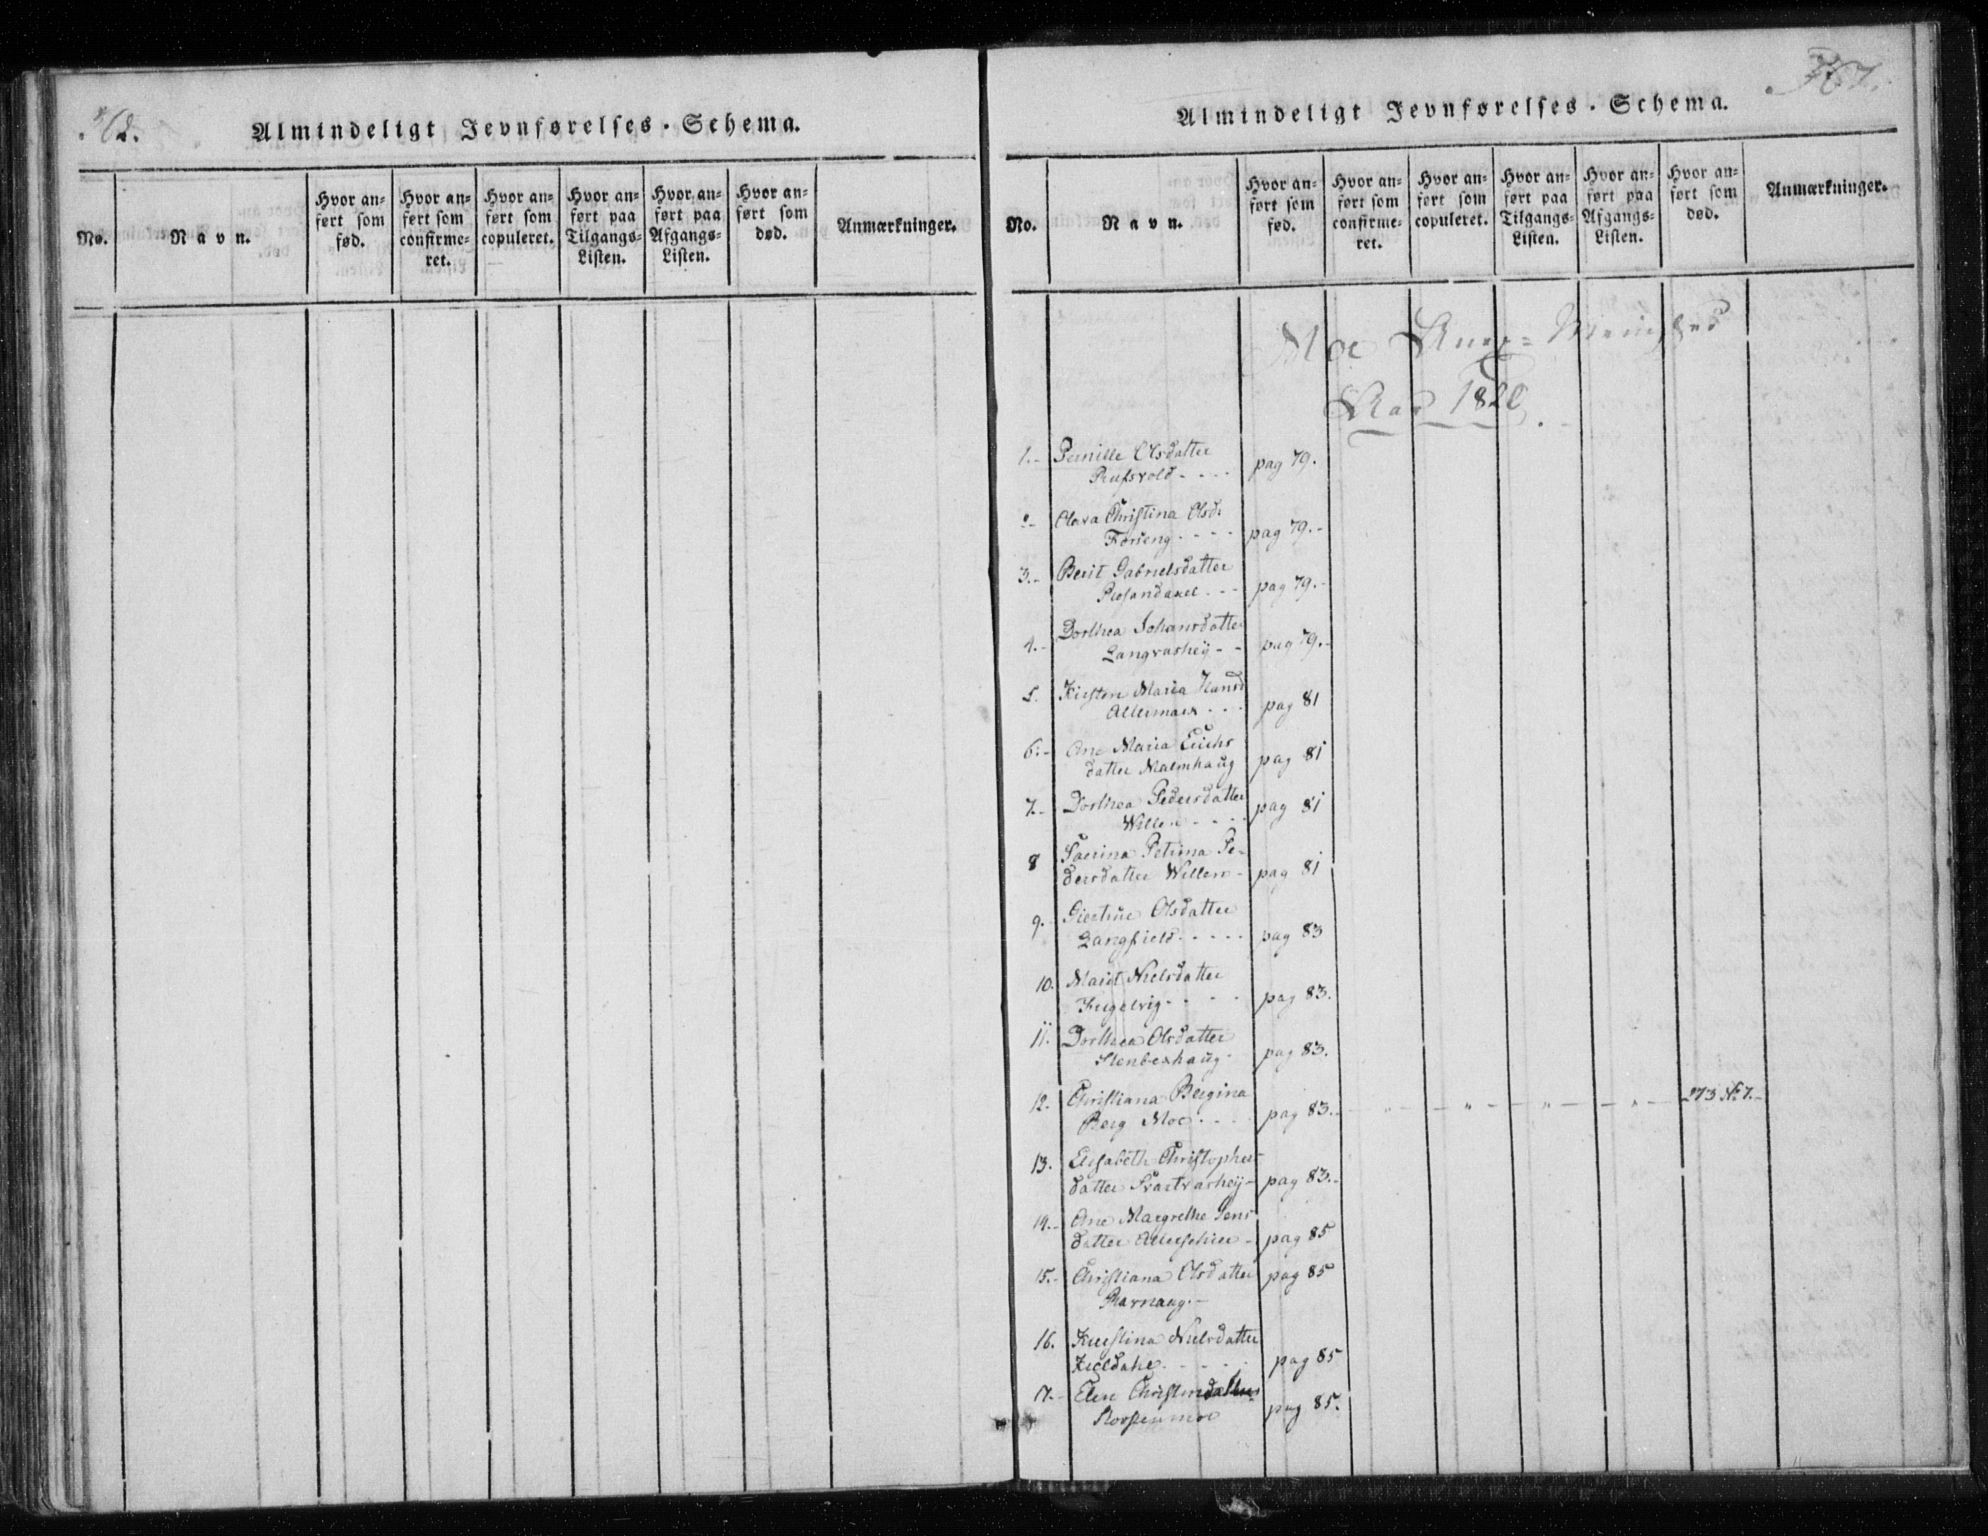 Almindeligt Jevnførelses-Schema.
No.
Navn.
Hvor anført som fød.
Hvor anført som confirmeret.
Hvor anført som copuleret.
Hvor anført paa Tilgangs-Listen.
Hvor anført paa Afgangs-Listen.
Hvor anført som død.
Anmærkninger.
Almindeligt Jevnførelses-Schema.
No.
Navn.
Hvor anført som fød.
Hvor anført som confirmeret.
Hvor anført som copuleret.
Hvor anført paa Tilgangs-Listen.
Hvor anført paa Afgangs-Listen.
Hvor anført som død.
Anmærkninger.
Moe Annex Menighed
Aar 1820.
1.- Pernille Olsdatter
Rufsvold - - - - pag 79.
Olava Christina Olsd:
Forseng - - - - pag 79.-
3.- Berit Gabrielsdatter
- - - pag 79.-
4.- Dorthea Johansdatter
Langvashey - - pag 79.-
5. Kirsten Maria Hansd
Altermark - - - pag 81
6.- Ane Maria Erichs
datter Malmhaug pag 81
7.- Dorthea Pedersdatter
Willen - - - - pag 81
8 Petrina Pe-
dersdatter Willen - pag 81
9. Giertrue Olsdatter
Langfield - - - - - pag 83
10. Marit Nielsdatter
Fugelvig - - - - pag 83.
11. Dorthea Olsdatter
Stenbekhaug - pag 83.
12.- Christiana Bergina
Berg Moe - - - pag 83.- - " - " - " - " - 273 № 7.-
13. Elisabeth Christophers
datter Svartvashey - pag 83.-
14.- Ane Margrethe Jens
datter - pag 85
15.- Christiana Olsdatter pag 85
Ravnaug.-
16. Kirstina Nielsdatter
Kieldahl - - - - - pag 85
17.- Elen Christensdatter
Storstenmoe pag 85.